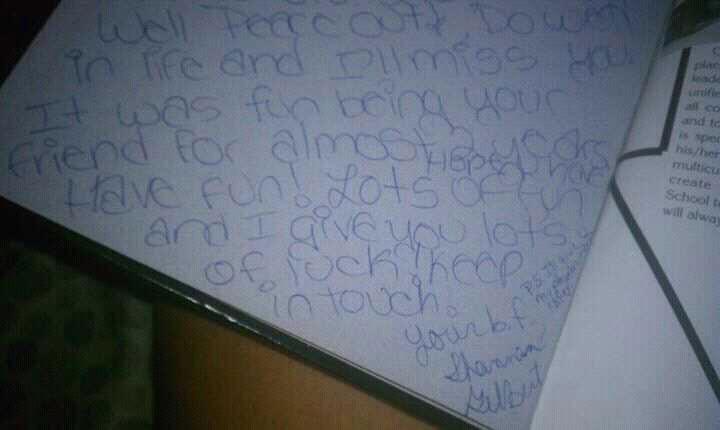 Well Peace out! Do well
in life and I'll miss you.
It was fun being your
friend for almost 2 years
Hope U have
Have Fun! Lots of fun
and I give you lots
of luck! Keep
in touch.
your b.f.
Shannan
Gilbert
P.S. I'll give
my number
later
plac
leade
unifie
all co
and to
is spec
his/her
multicu
create
School t
will alway